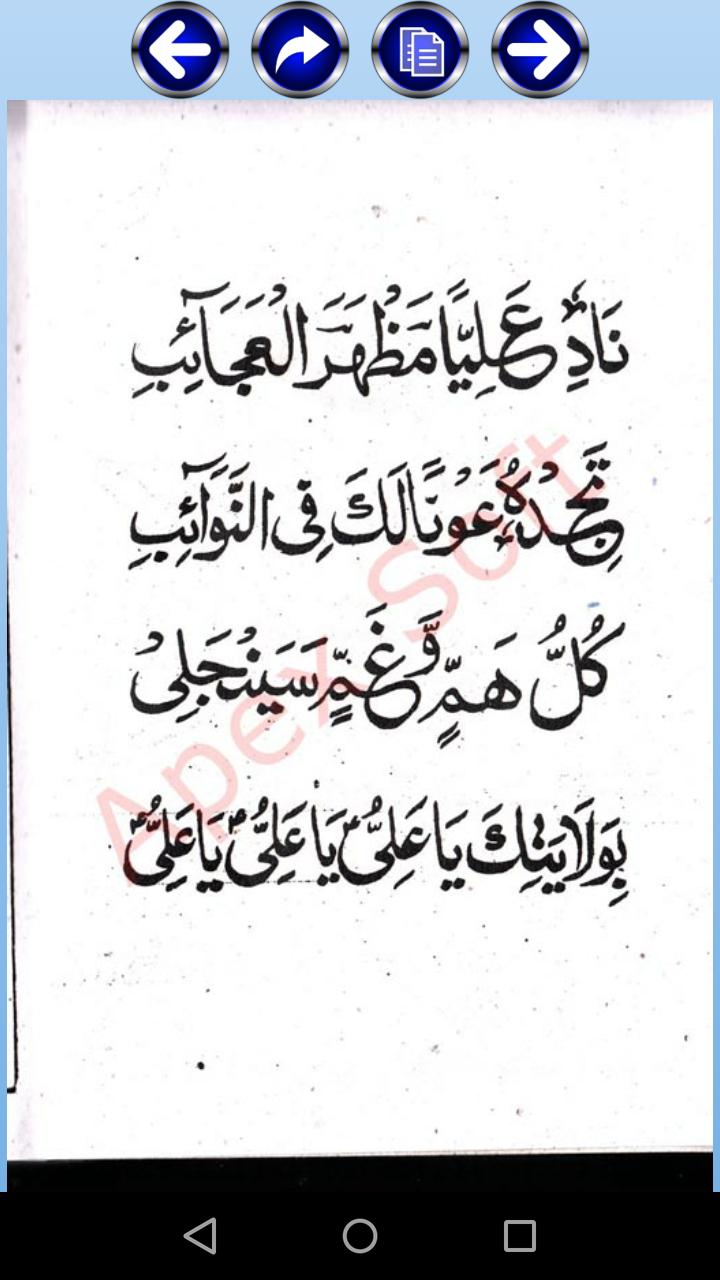 نَادِ عَلِيًّا مَظْهَرَ الْعَجَائِبِ
تَجِدْهُ عَوْنًا لَكَ فِی النَّوَائِبِ
كُلُّ هَمٍّ وَّغَمٍّ سَيَنْجَلِیْ
بِوَلَايَتِكَ يَا عَلِیُّ يَا عَلِیُّ يَا عَلِیُّ
Apex Soft